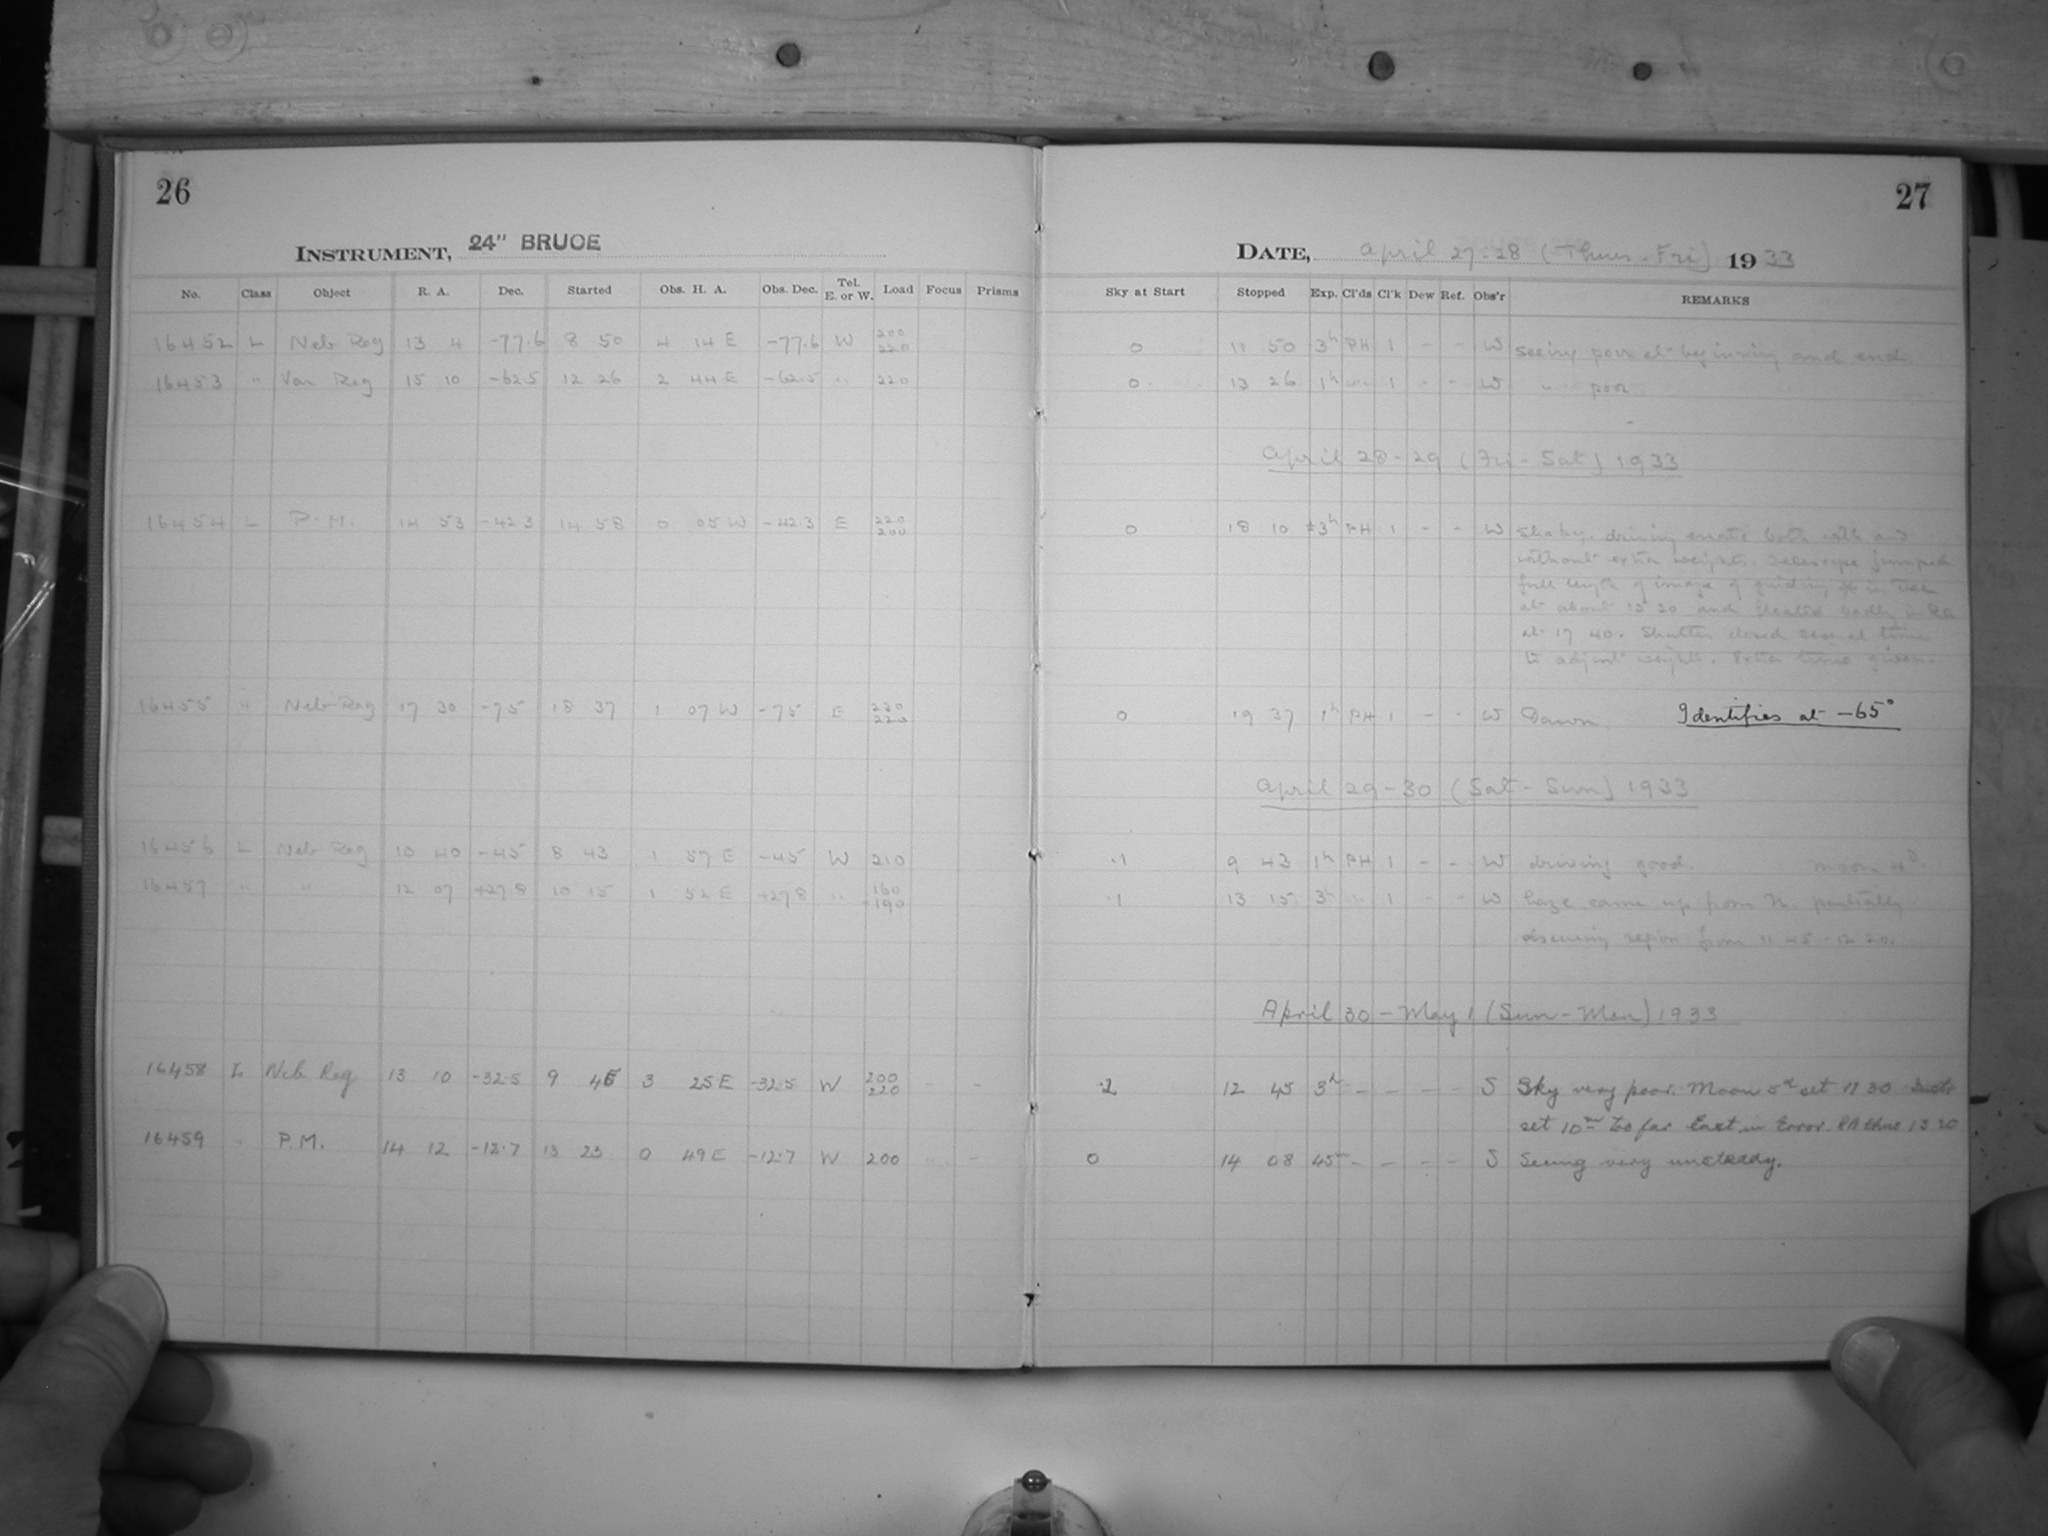 26
27
INSTRUMENT, 24" BRUCE
DATE, April 27:28 (Thurs-Fri) 1933
No. Class Object R. A. Dec. Started Obs. H. A. Obs. Dec. Tel. E. or W. Load Focus Prisms Sky at Start Stopped Exp. Cl'ds Cl'k Dew Ref. Obs'r REMARKS
16452 L Neb Reg 13 4 -77.6 8 50 4 14 E -77.6 W 200 220 0 11 50 3h PH 1 - - W seeing poor at beginning and end
16453 " Var Reg 15 10 -62.5 12 26 2 44 E -62.5 " 220 0 13 26 1h " 1 - - W " poor
April 28-29 (Fri-Sat) 1933
16454 L P.M. 14 53 -42.3 14 58 0 05 W -42.3 E 220 200 0 18 10 ±3h PH 1 - - W Shaky. driving erratic both with and
without extra weights. Telescope jumped
full length of image of guiding * in Dec
at about 15 20 and floated badly in RA
at 17 40. Shutter closed several time
to adjust weights. Extra time given.
16455 " Neb Reg 17 30 -75 18 37 1 07 W -75 E 220 0 19 37 1h PH 1 - - W Dawn Identifies at -65°
April 29-30 (Sat-Sun) 1933
16456 L Neb Reg 10 40 -45 8 43 1 57 E -45 W 210 .1 9 43 1h PH 1 - - W driving good. Moon 4d.
16457 " " 12 07 +27.8 10 15 1 52 E +27.8 " 160 190 .1 13 15 3h " 1 - - W haze came up from N. partially
obscuring region from 11 45 - 12 20.
April 30 - May 1 (Sun-Mon) 1933
16458 L Neb Reg 13 10 -32.5 9 45 3 25 E -32.5 W 200 220 - - .2 12 45 3h - - - - S Sky very poor. Moon 5d set 11 30
set 10m too far East in Error. RA thus 13 20
16459 " P.M. 14 12 -12.7 13 23 0 49 E -12.7 W 200 - - 0 14 08 45m - - - - S Seeing very unsteady.